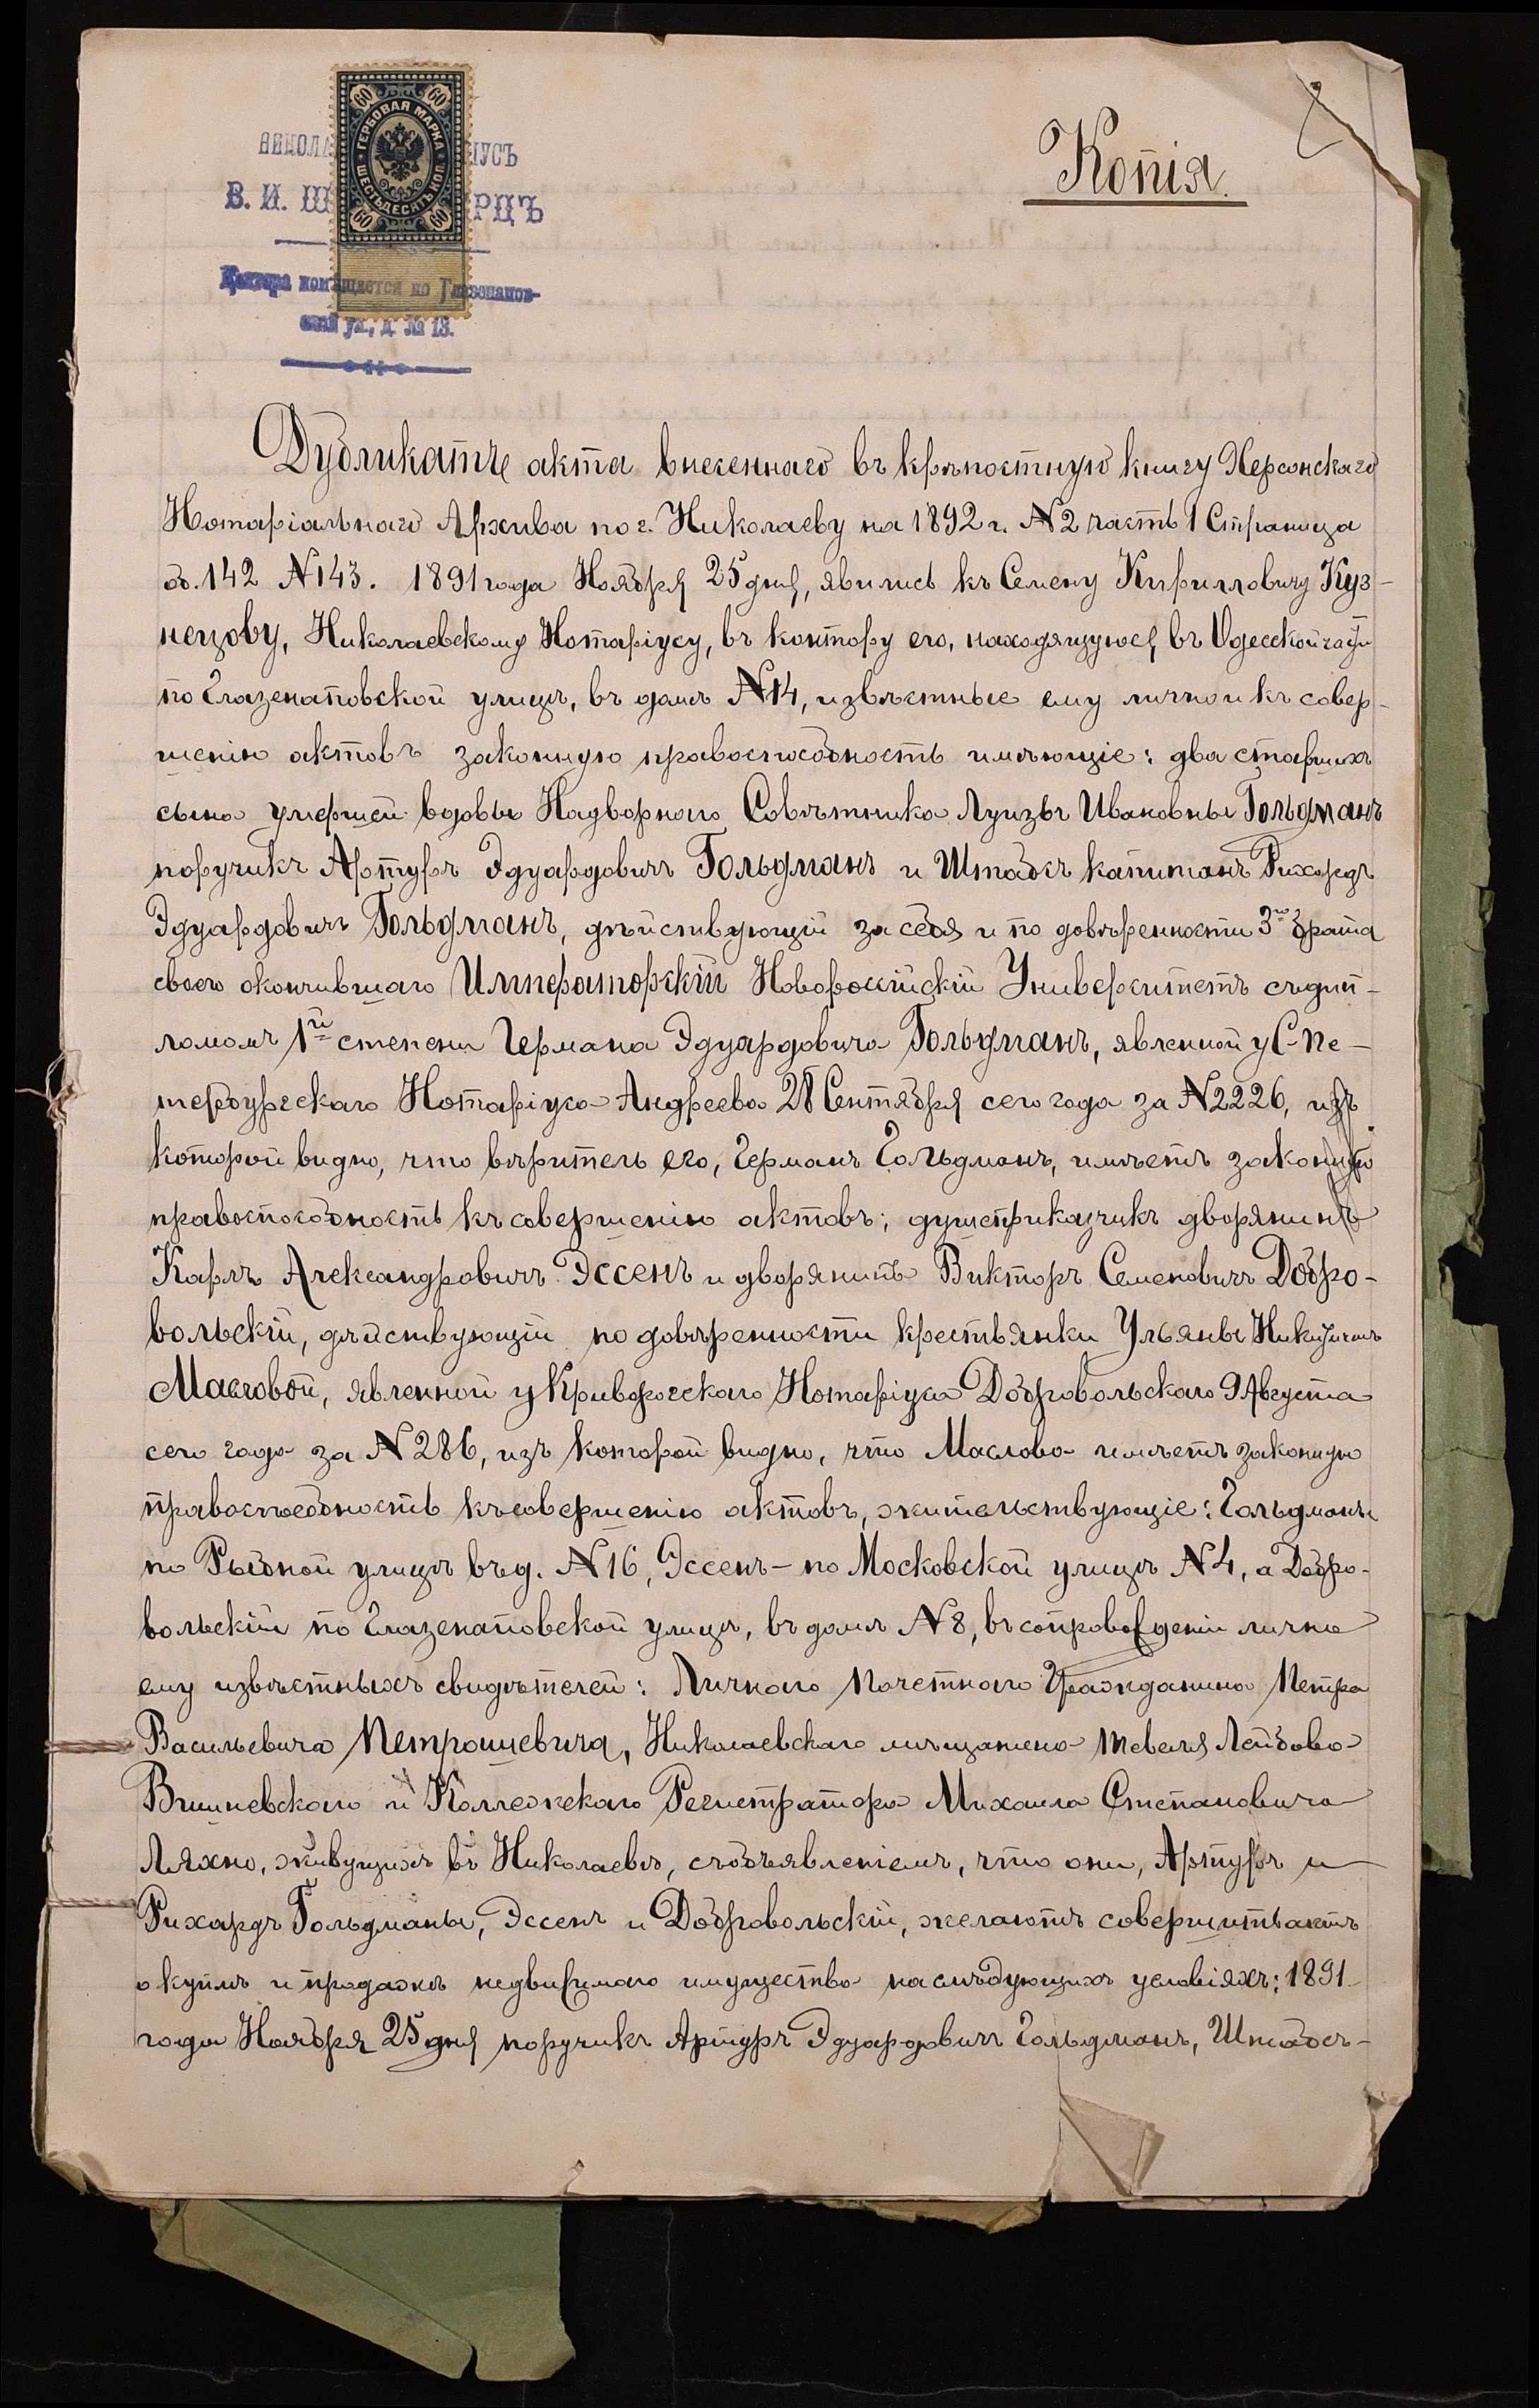 Копія.
60 60
ГЕРБОВАЯ МАРКА
ШЕСТЬДЕСЯТЪ КОП.
60 60
В. И. Ш РЦЪ
Контора помѣщается по Глазенапов-
ской ул., д. № 13.
Дубликатъ акта внесеннаго въ крѣпостную книгу Херсонскаго
Нотаріальнаго Архива по г. Николаеву на 1892 г. N2 часть 1 Страница
142 N143. 1891 года Ноября 25 дня, явились къ Семену Кирилловичу Куз-
нецову, Николаевскому Нотаріусу, въ контору его, находящуюся въ Одесской части
по Глазенаповской улицѣ, въ домѣ N14, извѣстные ему лично и къ совер-
шенію актовъ законную правоспособность имѣющіе: два старшихъ
сына умершей вдовы Надворнаго Совѣтника Луизы Ивановны Гольдманъ
поручикъ Артуръ Эдуардовичъ Гольдманъ и Штабсъ капитанъ Рихардъ
Эдуардовичъ Гольдманъ, дѣйствующій за себя и по довѣренности 3го брата
своего окончившаго Императорскій Новороссійскій Университетъ съ дип-
ломомъ 1й степени Германа Эдуардовича Гольдманъ, явленной у С-Пе-
тербургскаго Нотаріуса Андреева 28 Сентября сего года за N2226, изъ
которой видно, что вѣритель его, Германъ Гольдманъ, имѣетъ законную
правоспособность къ совершенію актовъ; душеприказчикъ дворянинъ
Карлъ Александровичъ Эссенъ и дворянинъ Викторъ Семеновичъ Добро-
вольскій, дѣйствующій по довѣренности крестьянки Ульяны Никитичны
Масловой, явленной у Криворогскаго Нотаріуса Добровольскаго 9 Августа
сего года за N286, изъ которой видно, что Маслова имѣетъ законную
правоспособность къ совершенію актовъ, жительствующіе: Гольдманы
по Рыбной улицѣ въ д. N16, Эссенъ - по Московской улицѣ N4, а Добро-
вольскій по Глазенаповской улицѣ, въ домѣ N8, въ сопровожденіи лично
ему извѣстныхъ свидѣтелей: Личнаго Почетнаго Гражданина Петра
Васильевича Петрошевича, Николаевскаго мѣщанина Тевеля Лейбова
Вишневскаго и Коллежскаго Регистратора Михаила Степановича
Ляхно, живущихъ въ Николаевѣ, съ объявленіемъ, что они, Артуръ и
Рихардъ Гольдманы, Эссенъ и Добровольскій, желаютъ совершить актъ
о куплѣ и продажѣ недвижимаго имущества на слѣдующихъ условіяхъ: 1891
года Ноября 25 дня поручикъ Артуръ Эдуардовичъ Гольдманъ, Штабсъ-